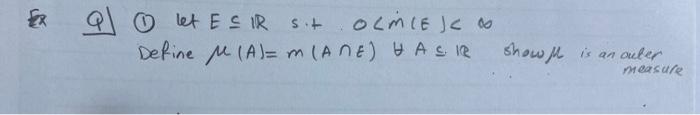 Ex Q1 ① let E ⊆ IR s.t. 0 < m(E) < ∞
Define μ(A) = m(A∩E) ∀ A ⊆ IR show μ is an outer
measure